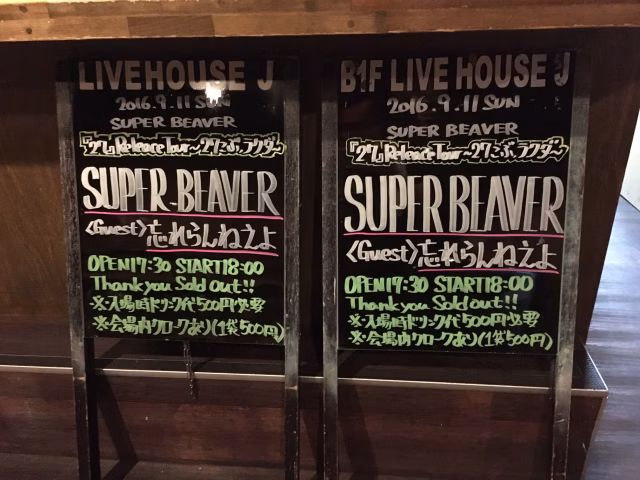 LIVEHOUSE J
2016.9.11 SUN
SUPER BEAVER
『27』Releace Tour～27こぶラクダ～
SUPER BEAVER
〈Guest〉忘れらんねえよ
OPEN17:30 START18:00
Thank you Sold out!!
※入場時ドリンク代500円必要
※会場内クロークあり(1袋500円)
B1F LIVE HOUSE J
2016.9.11 SUN
SUPER BEAVER
『27』Releace Tour～27こぶラクダ～
SUPER BEAVER
〈Guest〉忘れらんねえよ
OPEN17:30 START18:00
Thank you Sold out!!
※入場時ドリンク代500円必要
※会場内クロークあり(1袋500円)